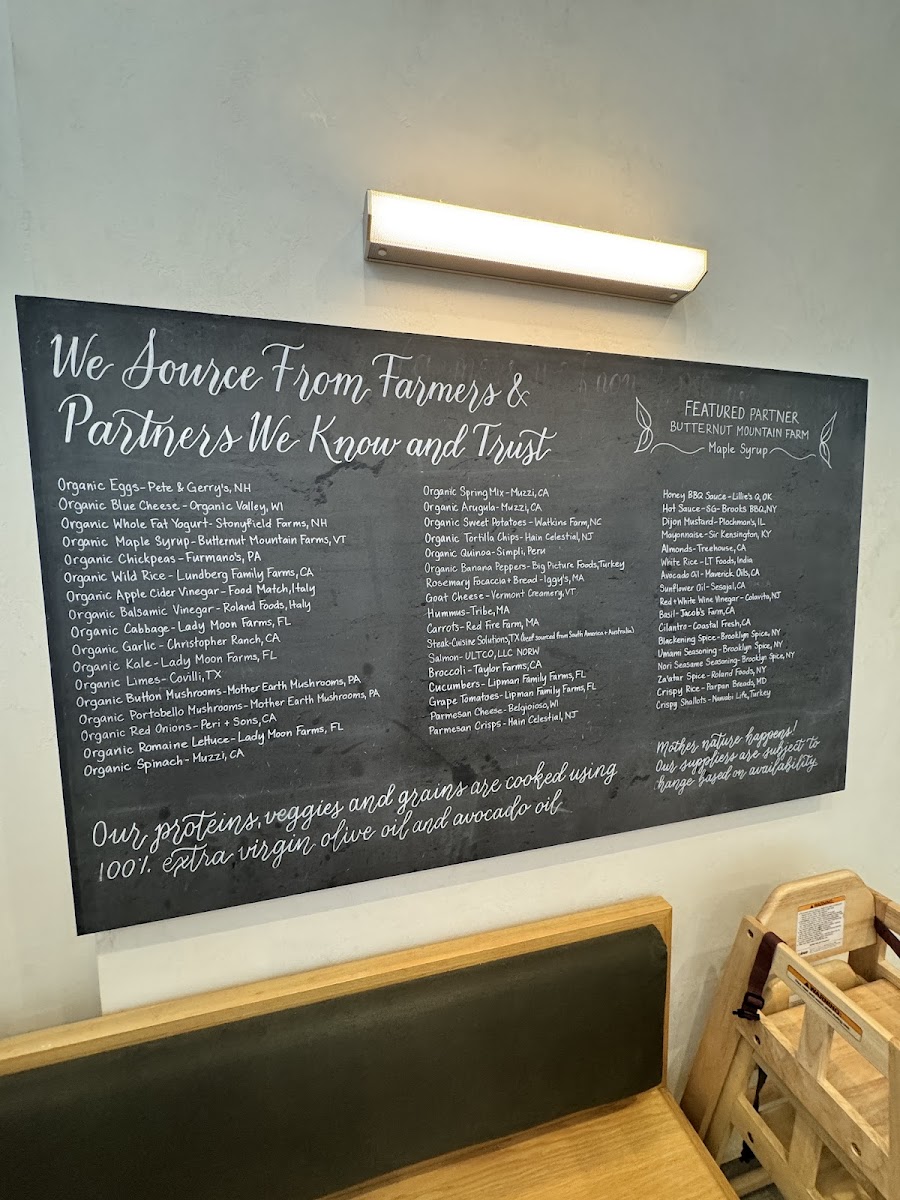 We Source From Farmers &
Partners We Know and Trust
Organic Eggs - Pete & Gerry's, NH
Organic Blue Cheese - Organic Valley, WI
Organic Whole Fat Yogurt - Stonyfield Farms, NH
Organic Maple Syrup - Butternut Mountain Farms, VT
Organic Chickpeas - Furmano's, PA
Organic Wild Rice - Lundberg Family Farms, CA
Organic Apple Cider Vinegar - Food Match, Italy
Organic Balsamic Vinegar - Roland Foods, Italy
Organic Cabbage - Lady Moon Farms, FL
Organic Garlic - Christopher Ranch, CA
Organic Kale - Lady Moon Farms, FL
Organic Limes - Covilli, TX
Organic Button Mushrooms - Mother Earth Mushrooms, PA
Organic Portobello Mushrooms - Mother Earth Mushrooms, PA
Organic Red Onions - Peri + Sons, CA
Organic Romaine Lettuce - Lady Moon Farms, FL
Organic Spinach - Muzzi, CA
Organic Spring Mix - Muzzi, CA
Organic Arugula - Muzzi, CA
Organic Sweet Potatoes - Watkins Farm, NC
Organic Tortilla Chips - Hain Celestial, NJ
Organic Quinoa - Simpli, Peru
Organic Banana Peppers - Big Picture Foods, Turkey
Rosemary Focaccia + Bread - Iggy's, MA
Goat Cheese - Vermont Creamery, VT
Hummus - Tribe, MA
Carrots - Red Fire Farm, MA
Steak - Cuisine Solutions, TX (Beef sourced from South America + Australia)
Salmon - ULTCO, LLC NORW
Broccoli - Taylor Farms, CA
Cucumbers - Lipman Family Farms, FL
Grape Tomatoes - Lipman Family Farms, FL
Parmesan Cheese - Belgioioso, WI
Parmesan Crisps - Hain Celestial, NJ
FEATURED PARTNER
BUTTERNUT MOUNTAIN FARM
Maple Syrup
Honey BBQ Sauce - Lillie's Q, OK
Hot Sauce - SG - Brooks BBQ, NY
Dijon Mustard - Plochman's, IL
Mayonnaise - Sir Kensington, KY
Almonds - Treehouse, CA
White Rice - LT Foods, India
Avocado Oil - Maverick Oils, CA
Sunflower Oil - Sesajal, CA
Red + White Wine Vinegar - Colavita, NJ
Basil - Jacob's Farm, CA
Cilantro - Coastal Fresh, CA
Blackening Spice - Brooklyn Spice, NY
Umami Seasoning - Brooklyn Spice, NY
Nori Seasame Seasoning - Brooklyn Spice, NY
Za'atar Spice - Roland Foods, NY
Crispy Rice - Parpan Breads, MD
Crispy Shallots - Life, Turkey
Mother nature happens!
Our suppliers are subject to
hange based on availability.
Our proteins, veggies and grains are cooked using
100% extra virgin olive oil and avocado oil.
WARNING
WARNING